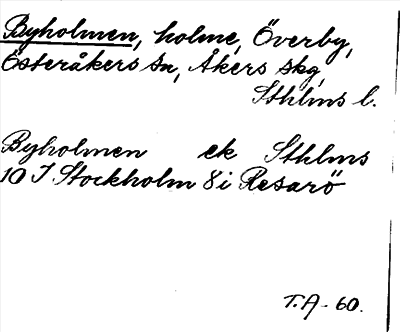 Byholmen, holme, Överby,
Österåkers sn, Åkers skg,
Sthlms l.
Byholmen ek Sthlms
10 I Stockholm 8 i Resarö
T.A-60.